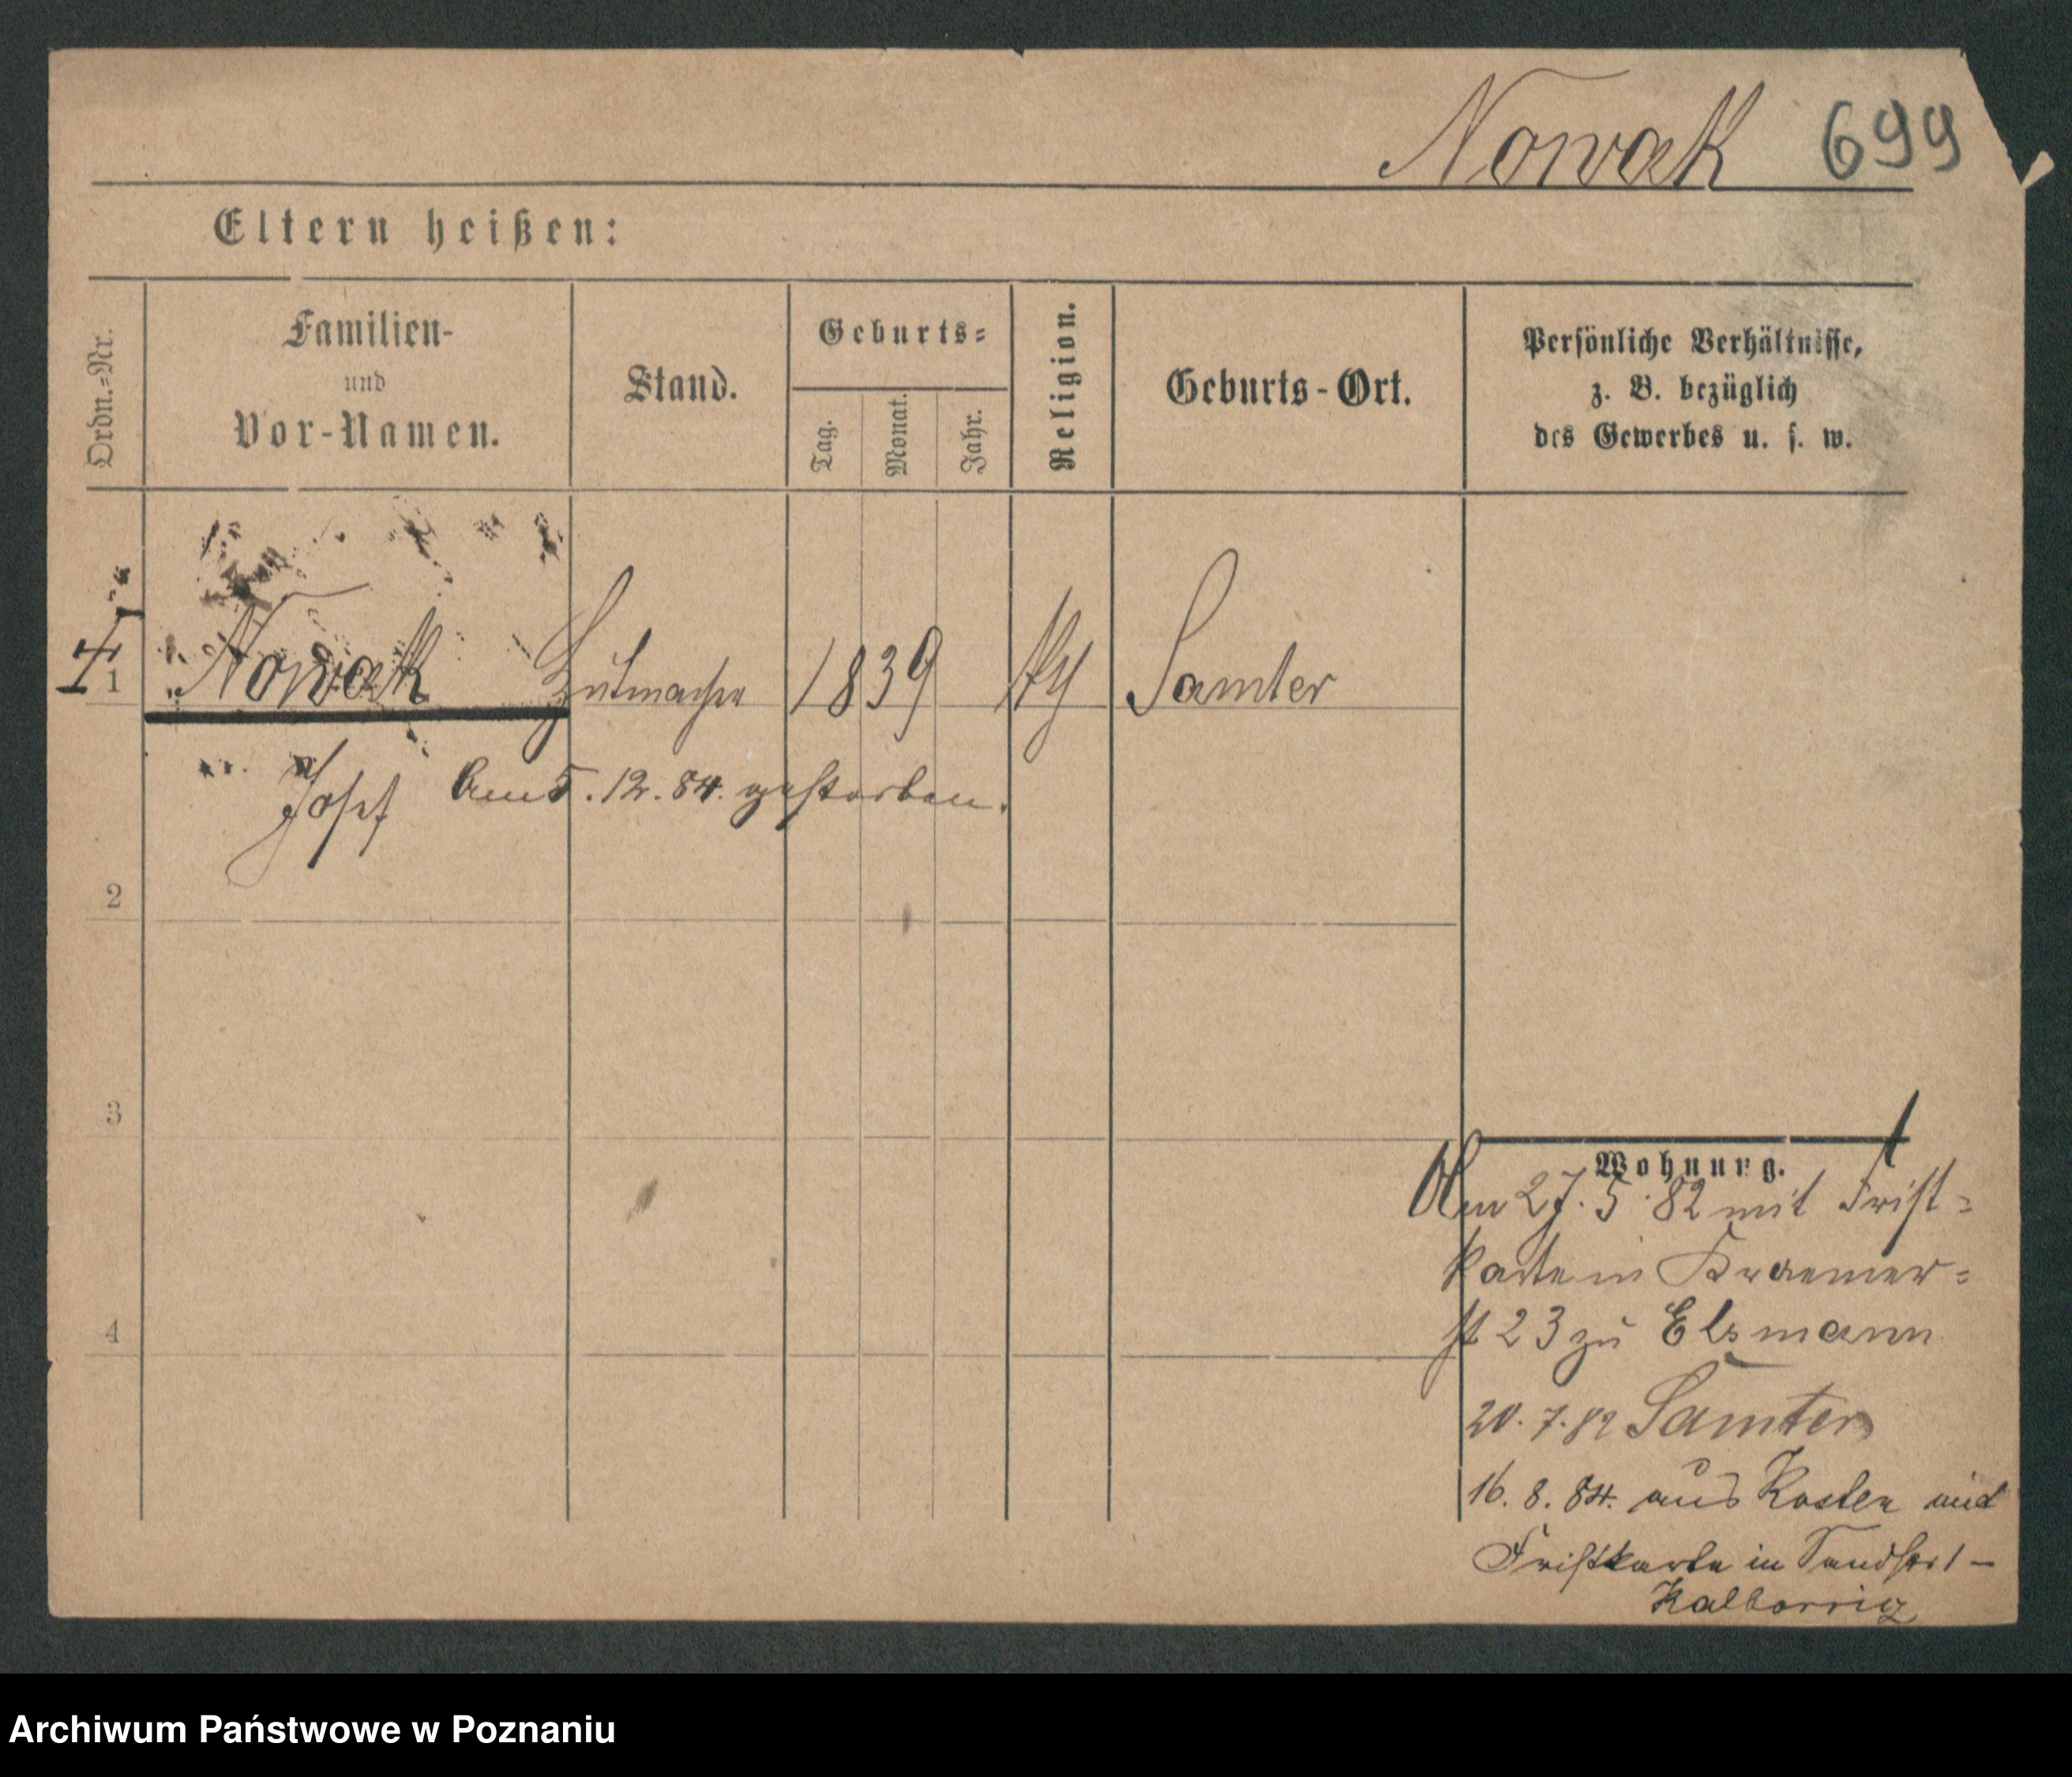 Nowak 699
Eltern heißen:
Ordn.=Nr.
Familien-
und
Vor-Namen.
Stand.
Geburts=
Tag.
Monat.
Jahr.
Religion.
Geburts-Ort.
Persönliche Verhältnisse,
z. B. bezüglich
des Gewerbes u. s. w.
1 Nowak Hutmacher 1839 Samter
Josef Am 5. 12. 84. gestorben.
2
3
4
Wohnung.
Am 27. 5. 82 mit Frist=
karte in Kraemer=
st 23 zu Elsmann
20. 7. 82 Samter
16. 8. 84. aus Kosten mit
Fristkarte in Sandstr 1 –
Archiwum Państwowe w Poznaniu